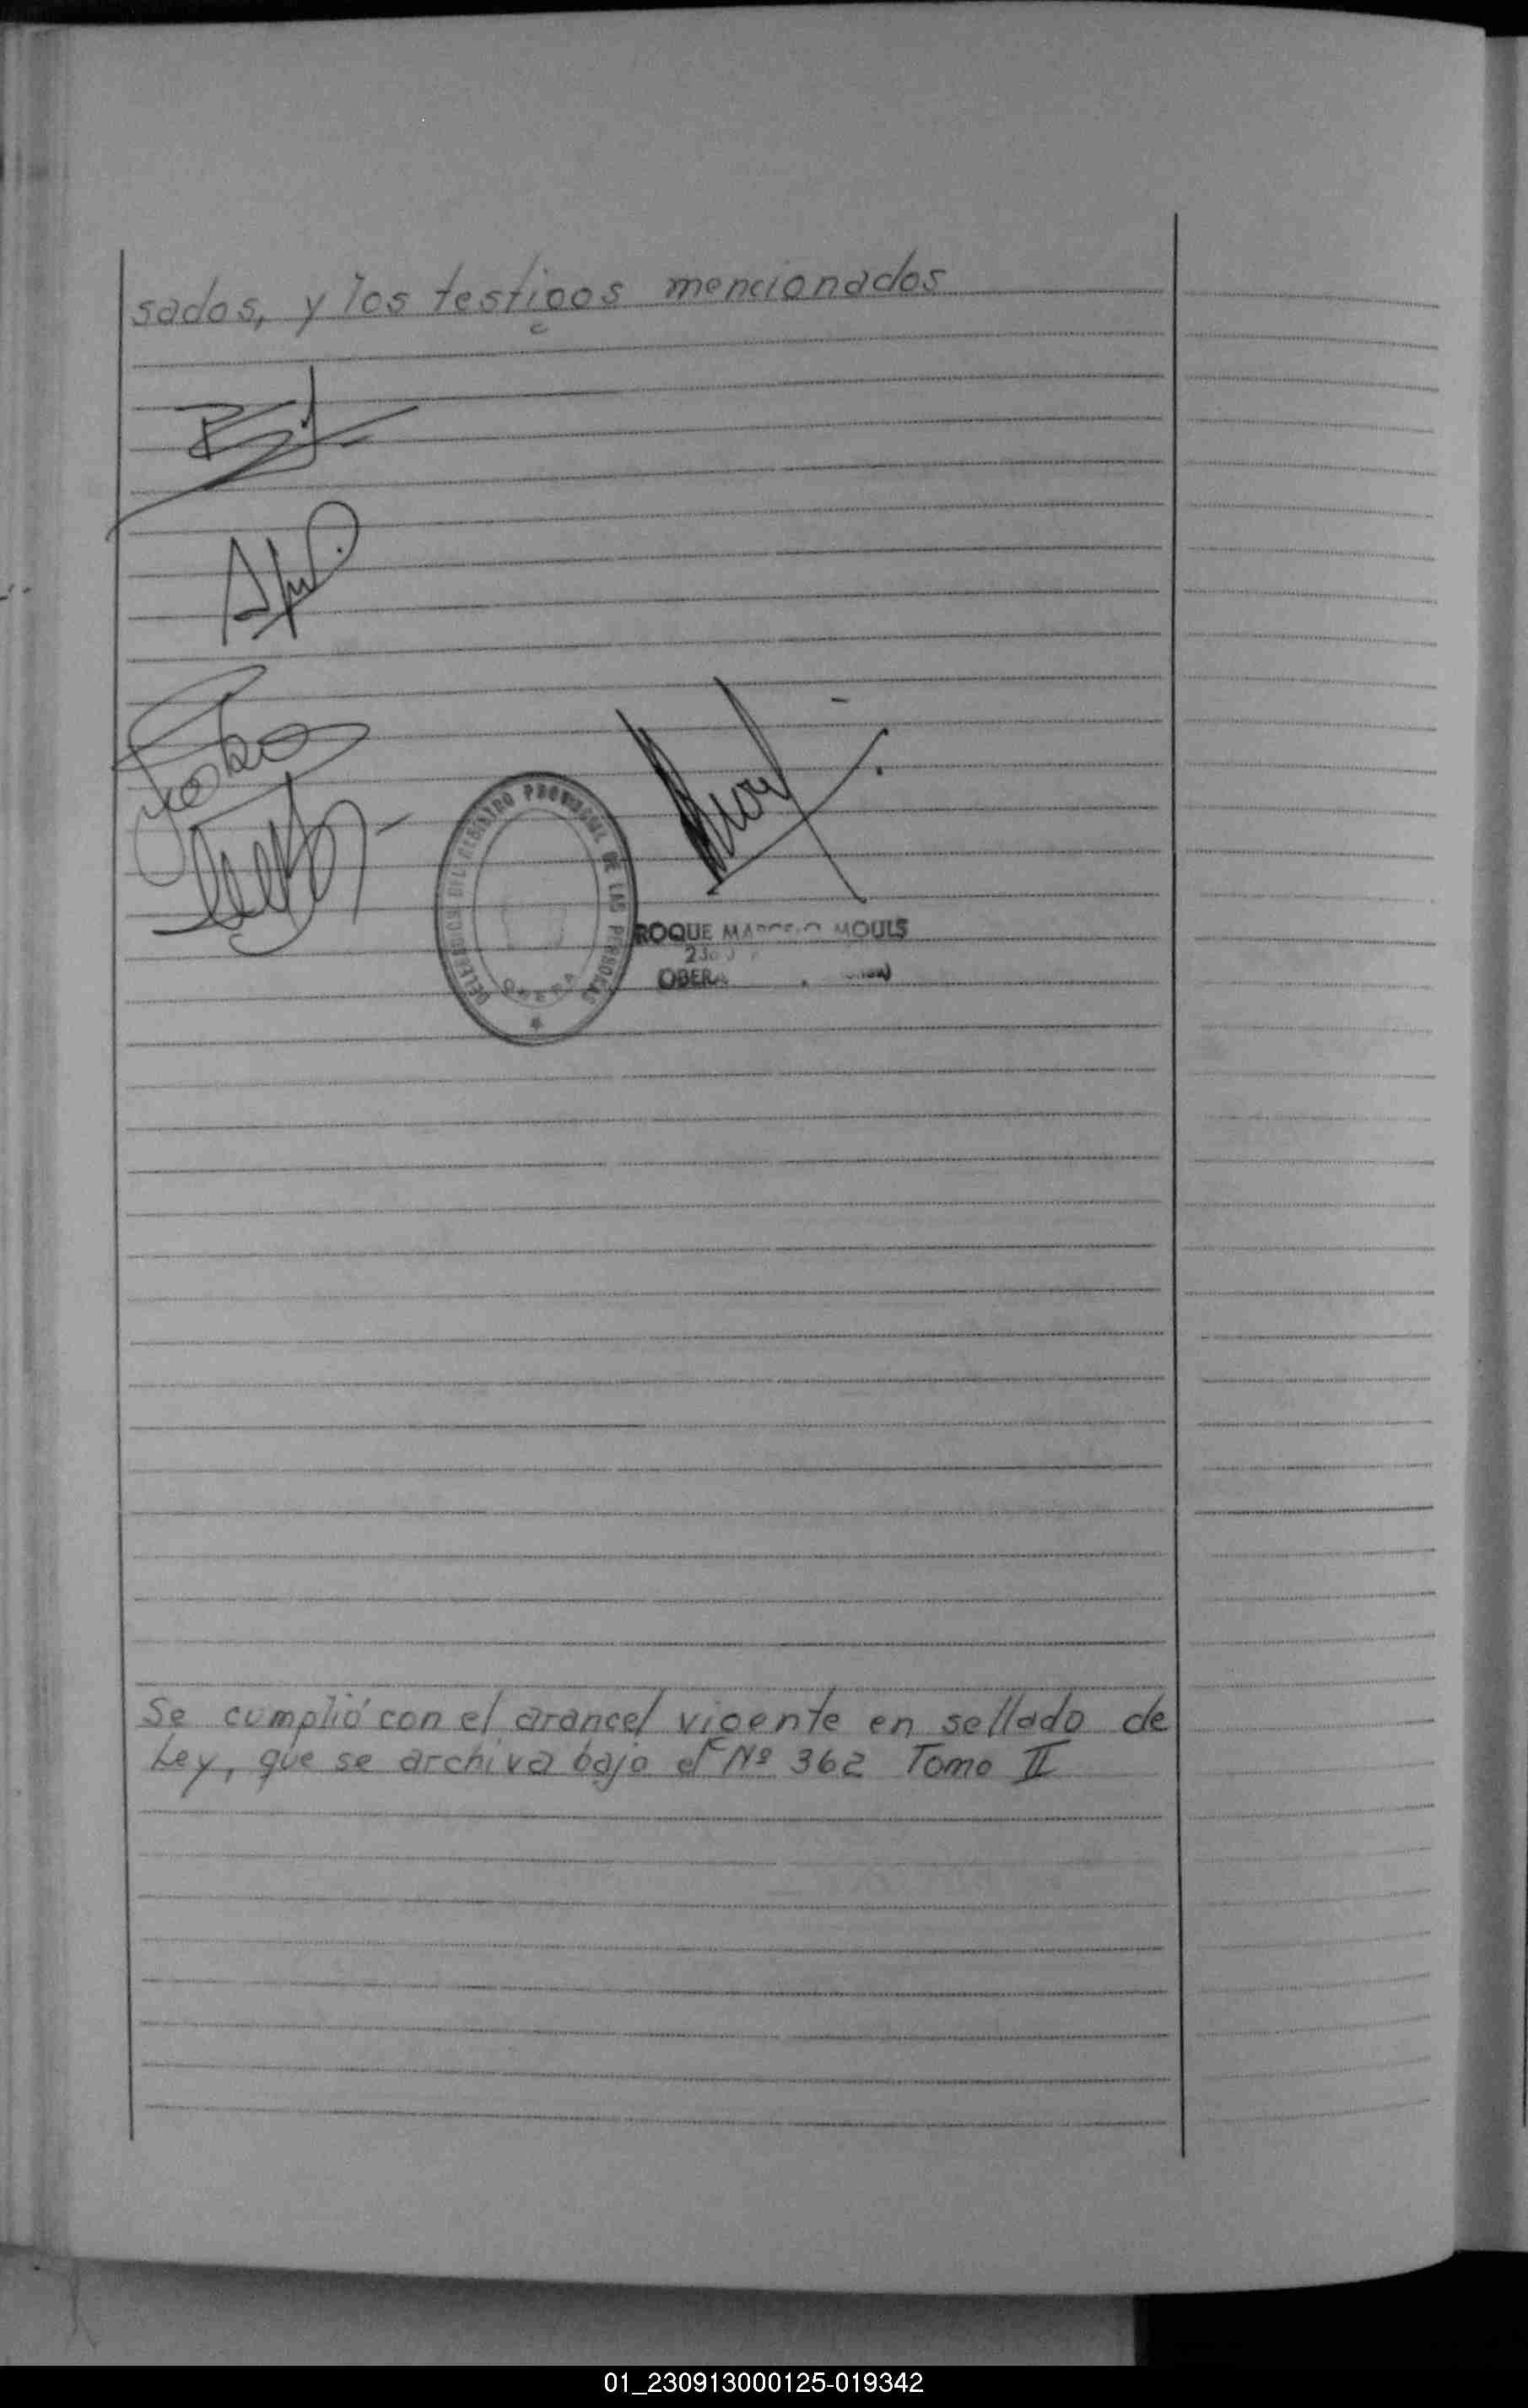 sados, y los testigos mencionados
DELEGACION DEL REGISTRO PROVINCIAL DE LAS PERSONAS
OBERA
ROQUE MARCELO MOULS
OBERA
Se cumplió con el arancel vigente en sellado de
Ley, que se archiva bajo el Nº 362 Tomo II
01_230913000125-019342